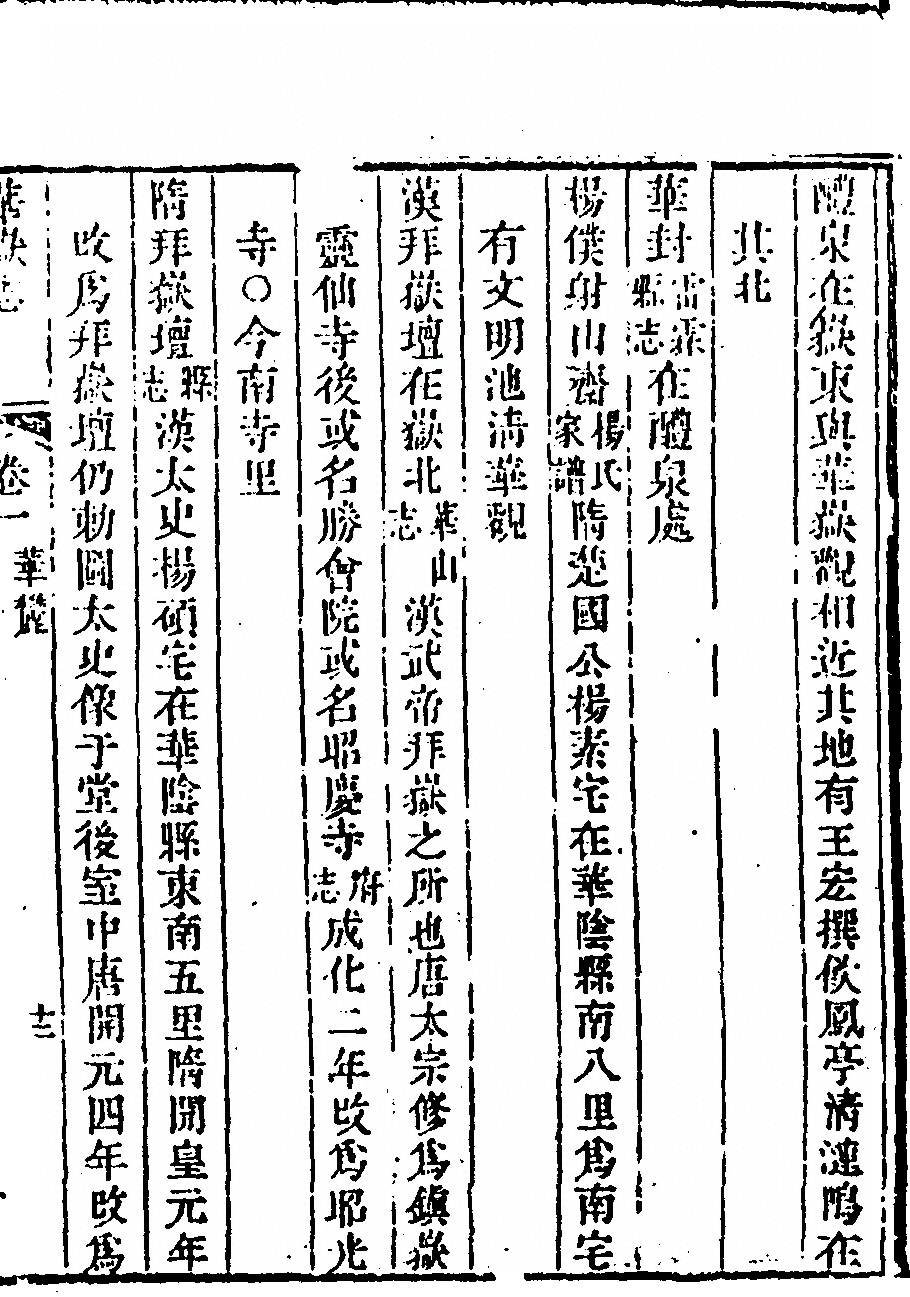 醴泉在嶽東與華嶽觀相近其地有王宏撰俟鳳亭清漣鳴在
其北
華封雷霖縣志在醴泉處
楊僕射山齋楊氏家譜隋楚國公楊素宅在華陰縣南八里爲南宅
有文明池清華觀
漢拜嶽壇在嶽北華山志漢武帝拜嶽之所也唐太宗修爲鎮嶽
靈仙寺後或名勝會院或名昭慶寺府志成化二年改爲昭光
寺○今南寺里
隋拜嶽壇縣志漢太史楊碩宅在華陰縣東南五里隋開皇元年
改爲拜嶽壇仍勅圖太史像于堂後室中唐開元四年改爲
華嶽志 卷一 華蹤 十二